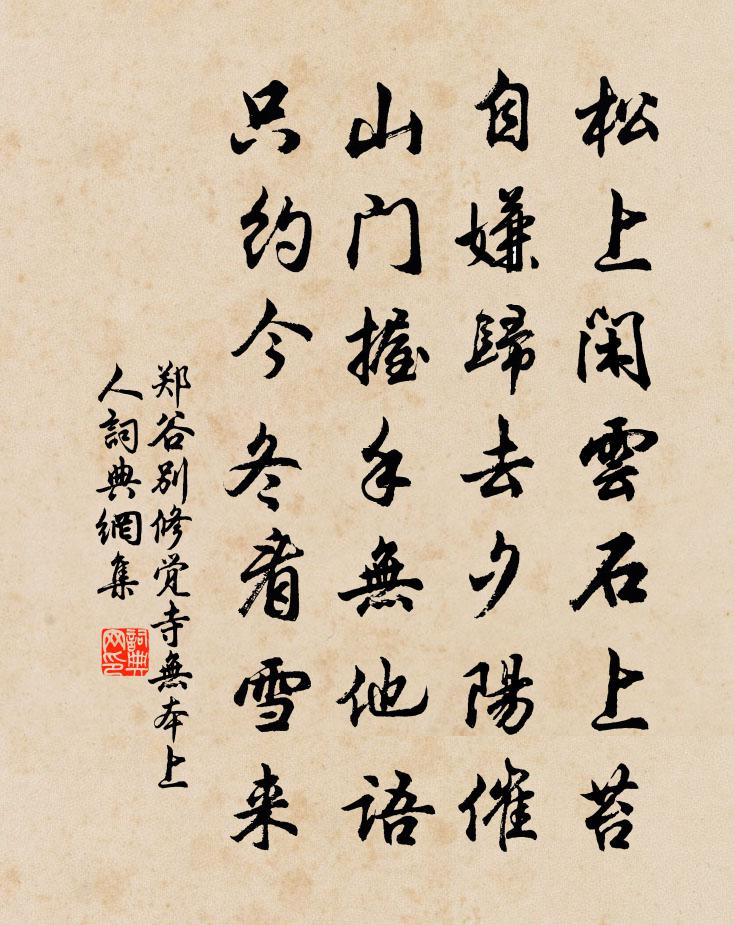 松上闲雲石上苔
自嫌歸去夕陽催
山门握手無他語
只约今冬看雪来
郑谷别修觉寺無本上
人詞典網集
詞典网印